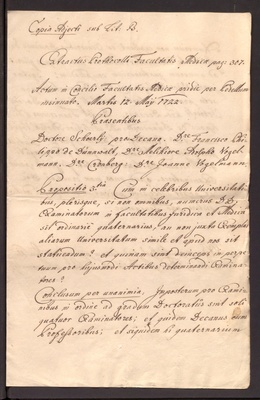 Copia Adjecti sub Lit. B.
Extractus Prothocolli Facultatis Medicæ pag: 307.
Actum in Consilio Facultatis Medicæ pridie per Pedellum
intimato, Martis 12. Maÿ 1722.
Præsentibus
Doctore Scheurle, pro-Decano. Dno Francisco
de Dünnwaldt, Dno Melchiore Balthas. Vogel-
mann, Dno Dno Joanne Vogelmann
Expositio 3tia Cum in celebribus Universitati-
bus, plerisque, si non omnibus, numerus D.D.
Examinatorum in facultatibus Juridica et Medica
sit ordinariè quaternarius, an non juxta Exempla
aliarum Universitatum simile et apud nos sit
statuendum? et quinam sint deinceps in perpe-
tuum pro hujusmodi Actibus determinandi Exmina-
tores?
Conclusum per unanimia, Imposterum pro Exami-
nibus in ordine ad gradum Doctoratus sint soli
quatuor Examinatores; et quidem Decanus cum
Professoribus; et siquidem hi quaternarium